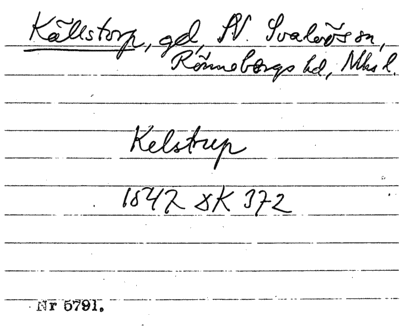 Källstorp, gd, N. Svalövs sn,
Rönnebergs hd, Mhs l.
Kelstrup
1547 8K 372
Nr 5791.